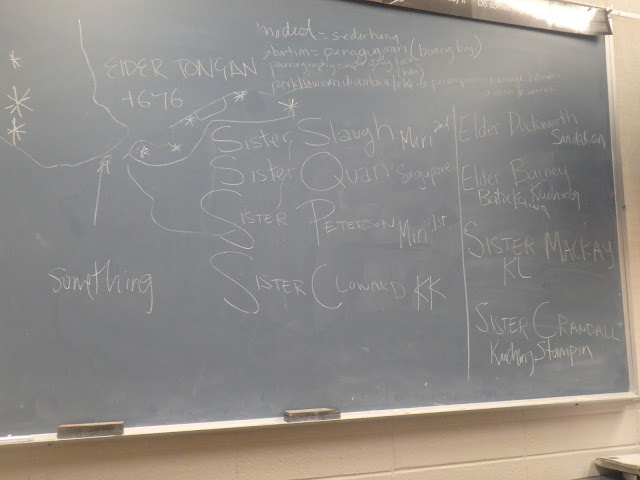 Do Som
modest = sederhana
abortion = pengguguran (buang bayi)
ELDER TONGAN
+676
Sister Slaugh Miri 2nd
Sister Quan Singapore
SISTER PETERSON Miri 1st
SISTER CLOWARD KK
something
Elder Duckworth
Sandakan
Elder Burney
Kuching
SISTER MACKAY
KL
SISTER CRANDALL
Kuching Stampin